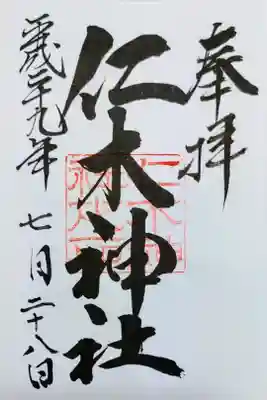 奉拝
仁木神社
平成二十九年
七月二十八日